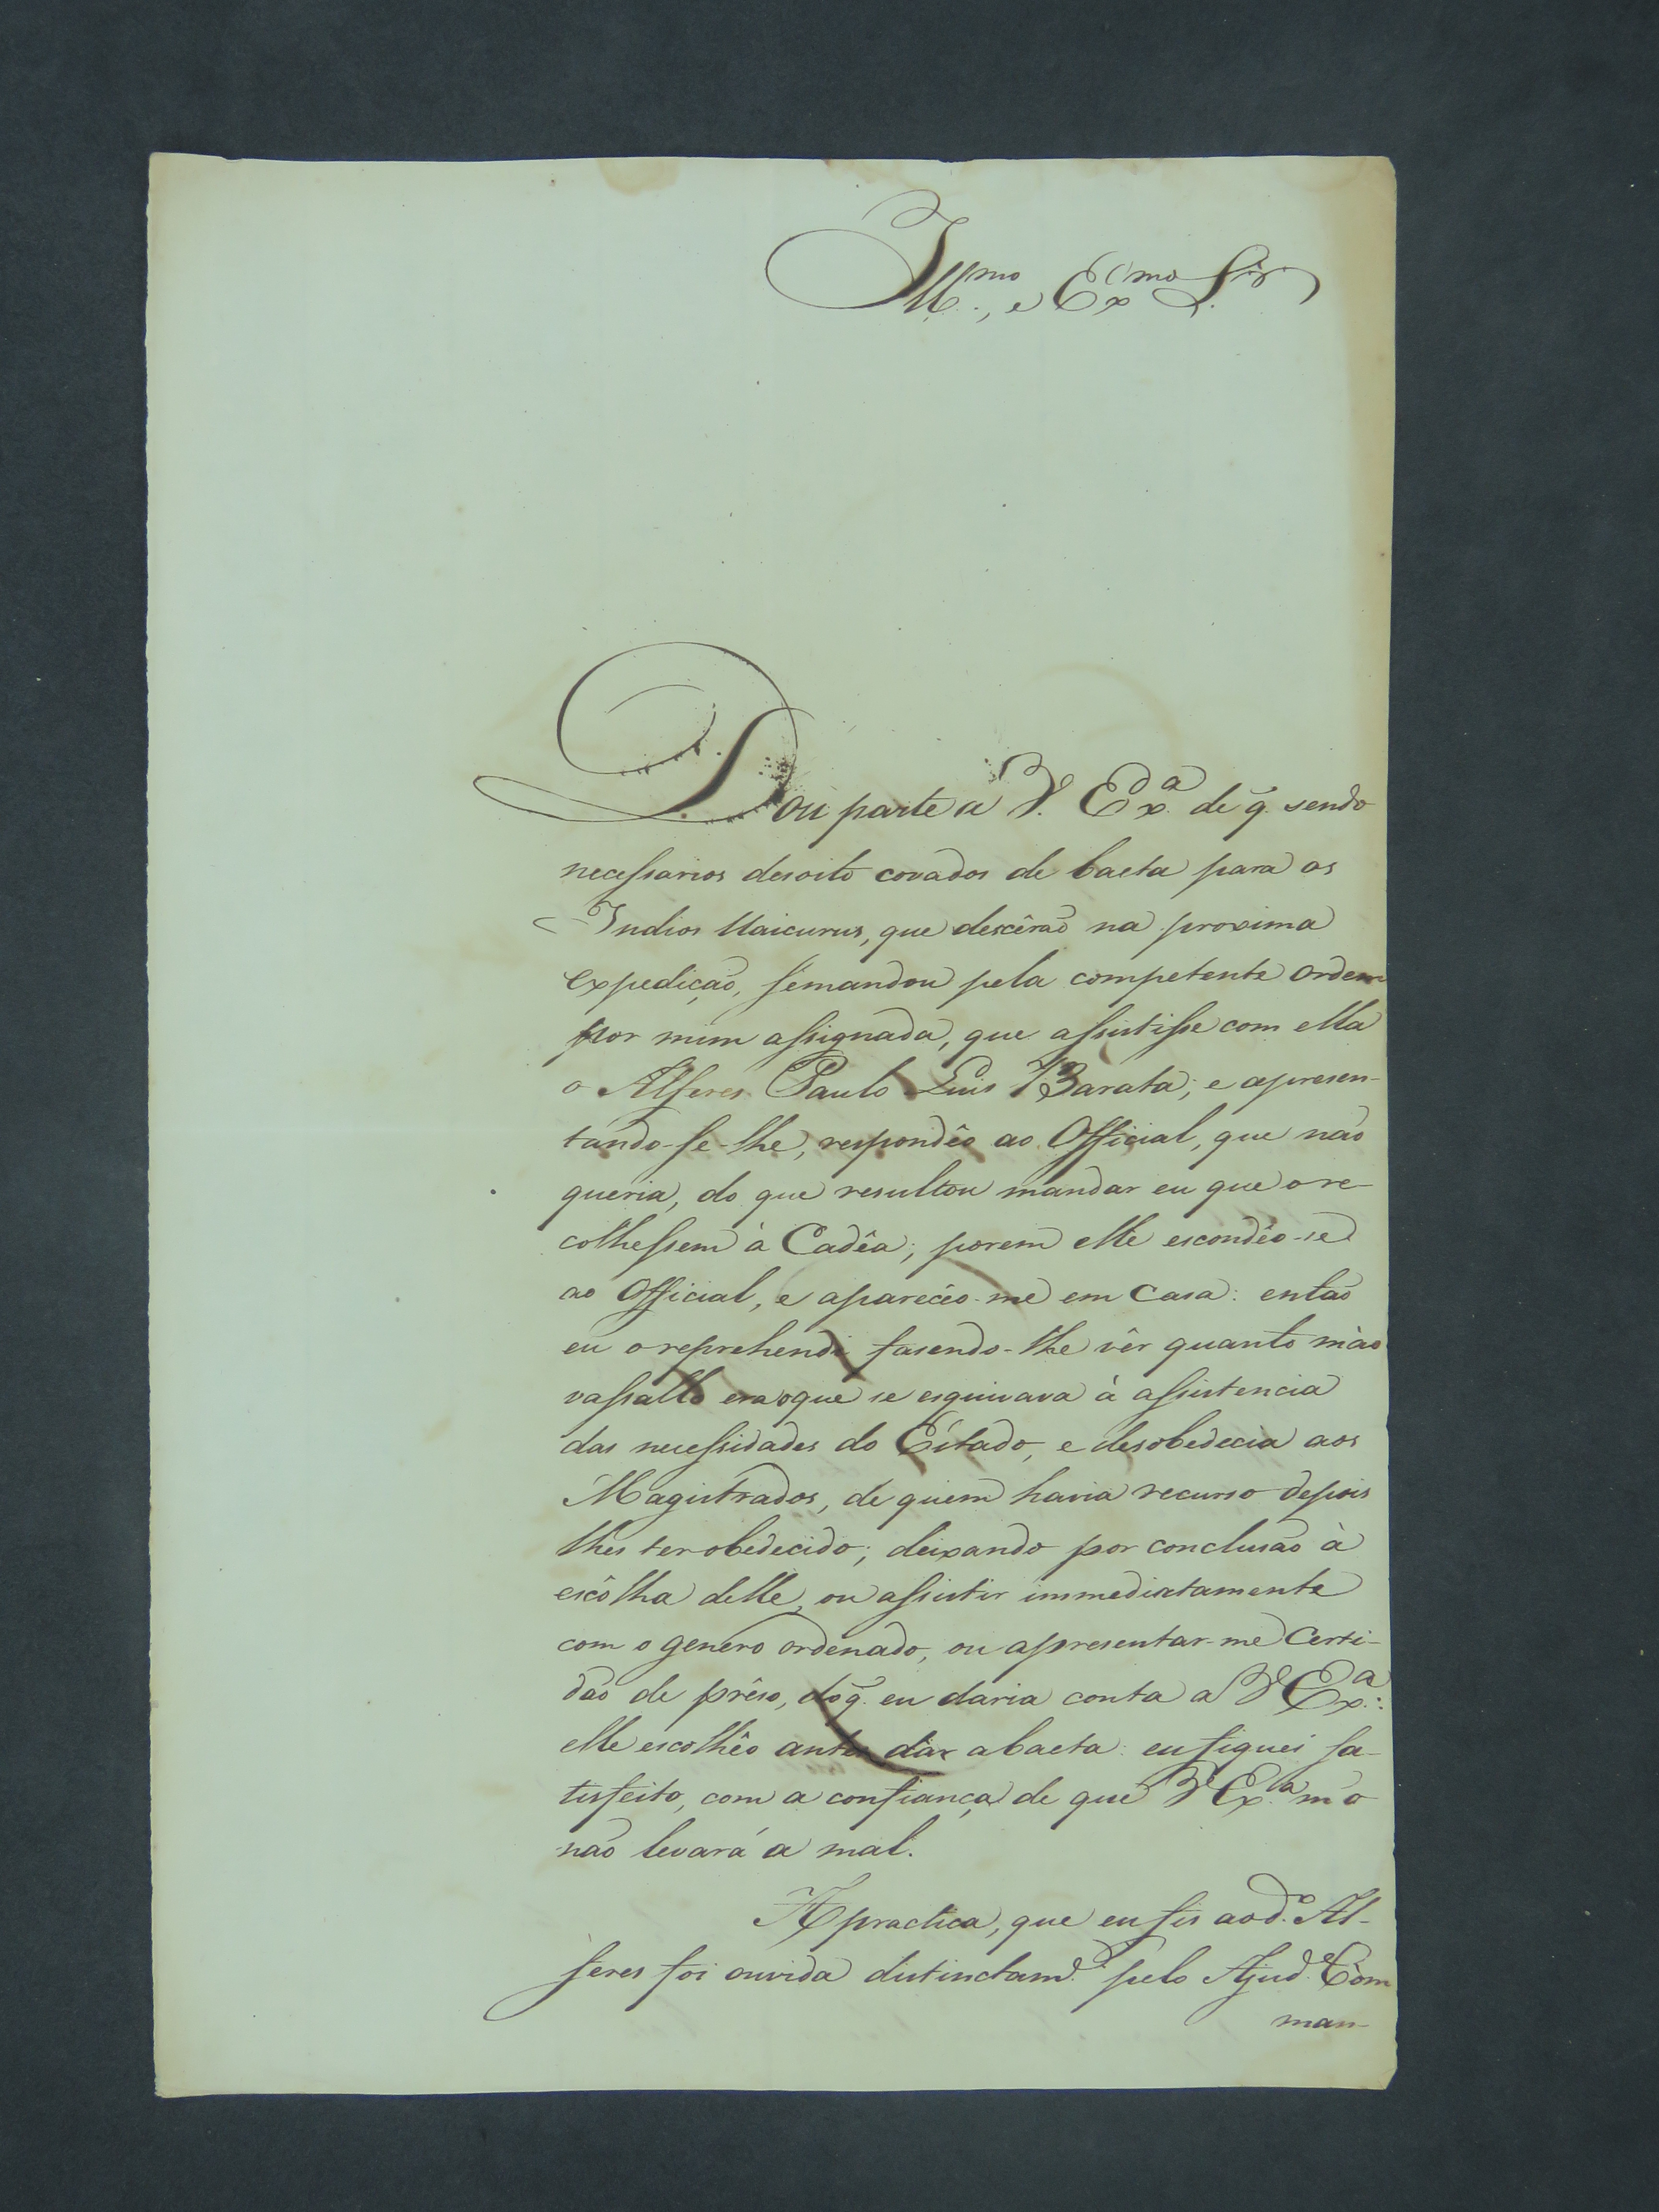 Ill.mo, e Ex.mo Snr.
Dou parte a V. Ex.a de q̃. sendo
necessarios desoito covados de baeta para os
Indios Uaicurus, que descêrão na proxima
expedição, se mandou pela competente ordem
por mim assignada, que assistisse com ella
o Alferes Paulo Luis Barata; e apresen-
tando-se-lhe, respondêo ao Official, que não
queria, do que resultou mandar eu que o re-
colhessem à Cadêa; porem elle escondêo-se
ao Official, e aparecêo-me em Casa: então
eu o reprehendi fasendo-lhe vêr quanto mào
vassallo era o que se esquivava à assistencia
das necessidades do Estado, e desobedecia aos
Magistrados, de quem havia recurso depois
lhes ter obedecido; deixando por conclusão à
escôlha delle, ou assistir immediatamente
com o genero ordenado, ou apresentar-me Certi-
dão de prêso, do q̃. eu daria conta a V Ex.a:
elle escolhêo antes dar a baeta: eu fiquei sa-
tisfeito, com a confiança de que V Ex.a m'o
não levará a mal.
A practica, que eu fis ao d.o Al-
feres foi ouvida distinctam.e pelo Ajud.e Com
man-